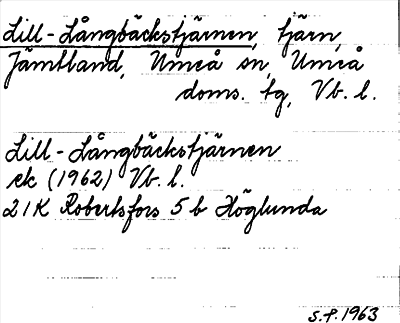 Lill-Långbäckstjärnen, tjärn,
Jämtland, Umeå sn, Umeå
doms. tg, Vb. l.
Lill-Långbäckstjärnen
ek (1962) Vb. l.
21K Robertsfors 5 b Höglunda
S.F. 1963